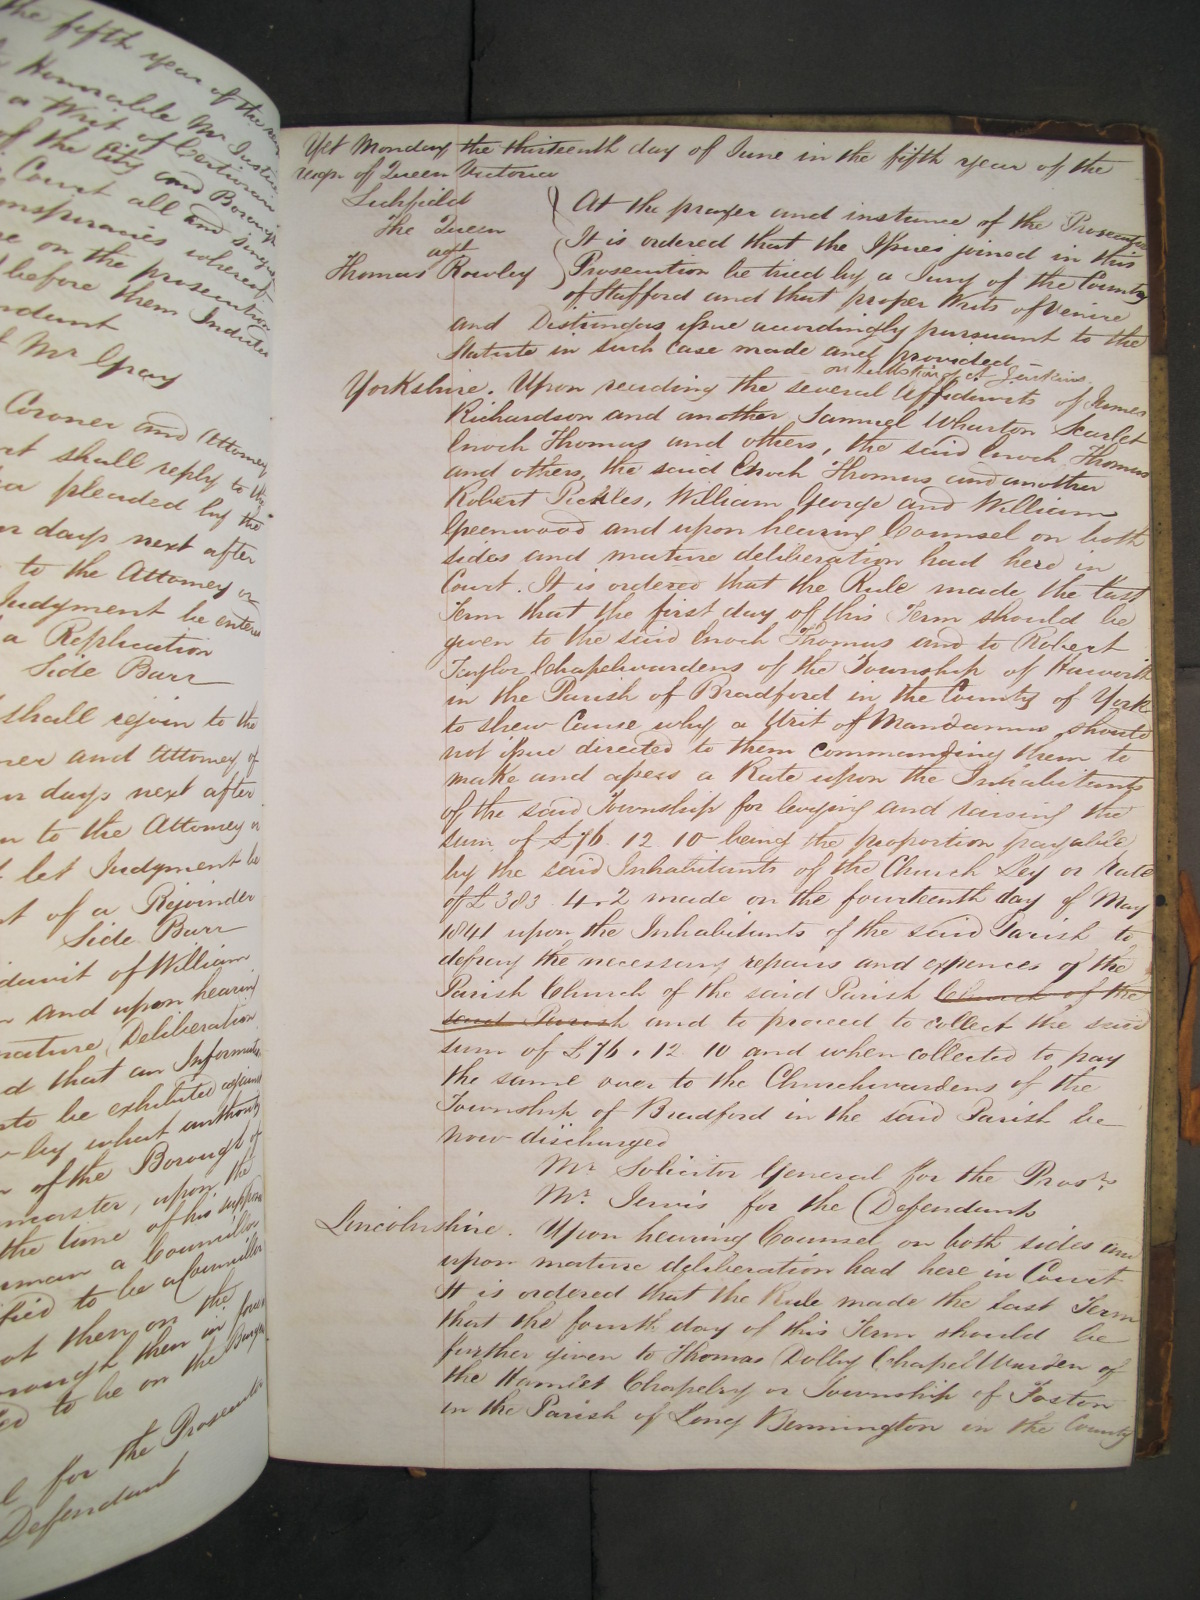 the fifth year of the
Honorable Mr Justice
a Writ of Certiorari
of the City and Borough
Court all and singular
conspiracies whereof
on the prosecution
before them Indictes
Mr Gray
Coroner and Attorney
shall reply to the
pleaded by the
days next after
to the Attorney or
Judgment be entered
a Replication
Side Barr
shall rejoin to the
and Attorney of
days next after
to the Attorney or
let Judgment be
of a Rejoinder
Side Barr
of William
and upon hearing
mature Deliberation
that an Information
to be exhibited against
by what authority
of the Borough of
upon the
the time of his
a Councillor
to be a Councillor
then on the
then in
to be on the
for the Prosecutor
Defendant
Yet Monday the thirteenth day of June in the fifth year of the
reign of Queen Victoria
Lichfield
The Queen
agt
Thomas Rowley
At the prayer and instance of the Prosecutor
It is ordered that the Issues joined in this
Prosecution be tried by a Jury of the County
of Stafford and that proper Writs of Venire
and Distringas issue accordingly pursuant to the
Statute in such case made and provided
Yorkshire. Upon reading the several Affidavits of James
Richardson and another Samuel Wharton Scarlet
Enoch Thomas and others, the said Enoch Thomas
and others, the said Enoch Thomas and another
Robert Pickles, William George and William
Greenwood and upon hearing Counsel on both
sides and mature deliberation had here in
Court. It is ordered that the Rule made the last
Term that the first day of this Term should be
given to the said Enoch Thomas and to Robert
Taylor Chapelwardens of the Township of Haworth
in the Parish of Bradford in the County of York
to shew Cause why a Writ of Mandamus should
not issue directed to them commanding them to
make and assess a Rate upon the Inhabitants
of the said Township for levying and raising the
sum of £76. 12. 10 being the proportion payable
by the said Inhabitants of the Church Ley or Rate
of £383. 4. 2 made on the fourteenth day of May
1841 upon the Inhabitants of the said Parish to
defray the necessary repairs and expences of the
Parish Church of the said Parish Church of the
said Parish and to proceed to collect the said
sum of £76. 12 10 and when collected to pay
the same over to the Churchwardens of the
Township of Bradford in the said Parish be
now discharged
Mr Solicitor General for the Prosr
Mr Jervis for the Defendants
Lincolnshire. Upon hearing Counsel on both sides and
upon mature deliberation had here in Court
It is ordered that the Rule made the last Term
that the fourth day of this Term should be
further given to Thomas Dolby Chapel Warden of
the Hamlet Chapelry or Township of Foston
in the Parish of Long Bennington in the County